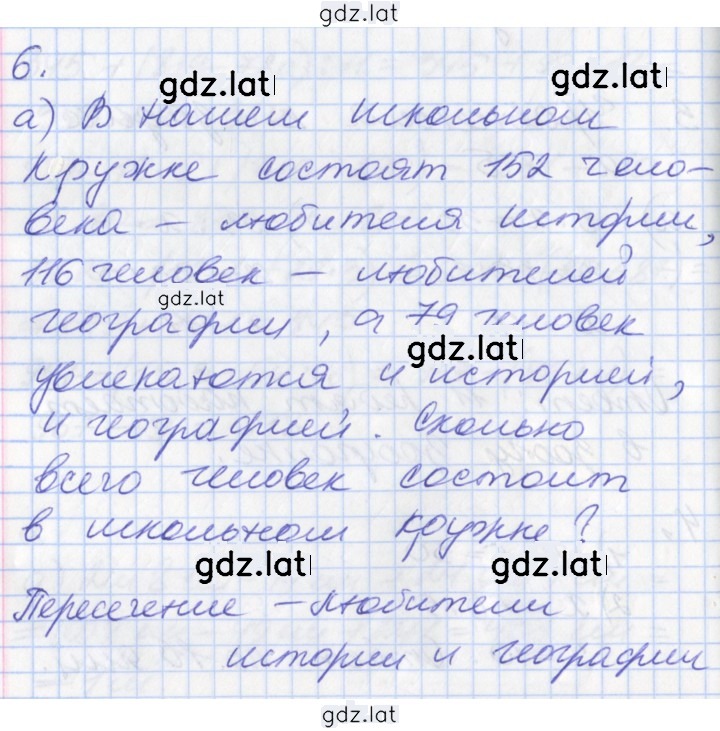 gdz.lat
6.
gdz.lat
gdz.lat
а) В нашем школьном
кружке состоят 152 чело-
века – любителя истории,
116 человек – любителей
gdz.lat
географии, а 79 человек
gdz.lat
увлекаются и историей,
и географией. Сколько
всего человек состоит
в школьном кружке?
gdz.lat
gdz.lat
Пересечение – любители
истории и географии
gdz.lat